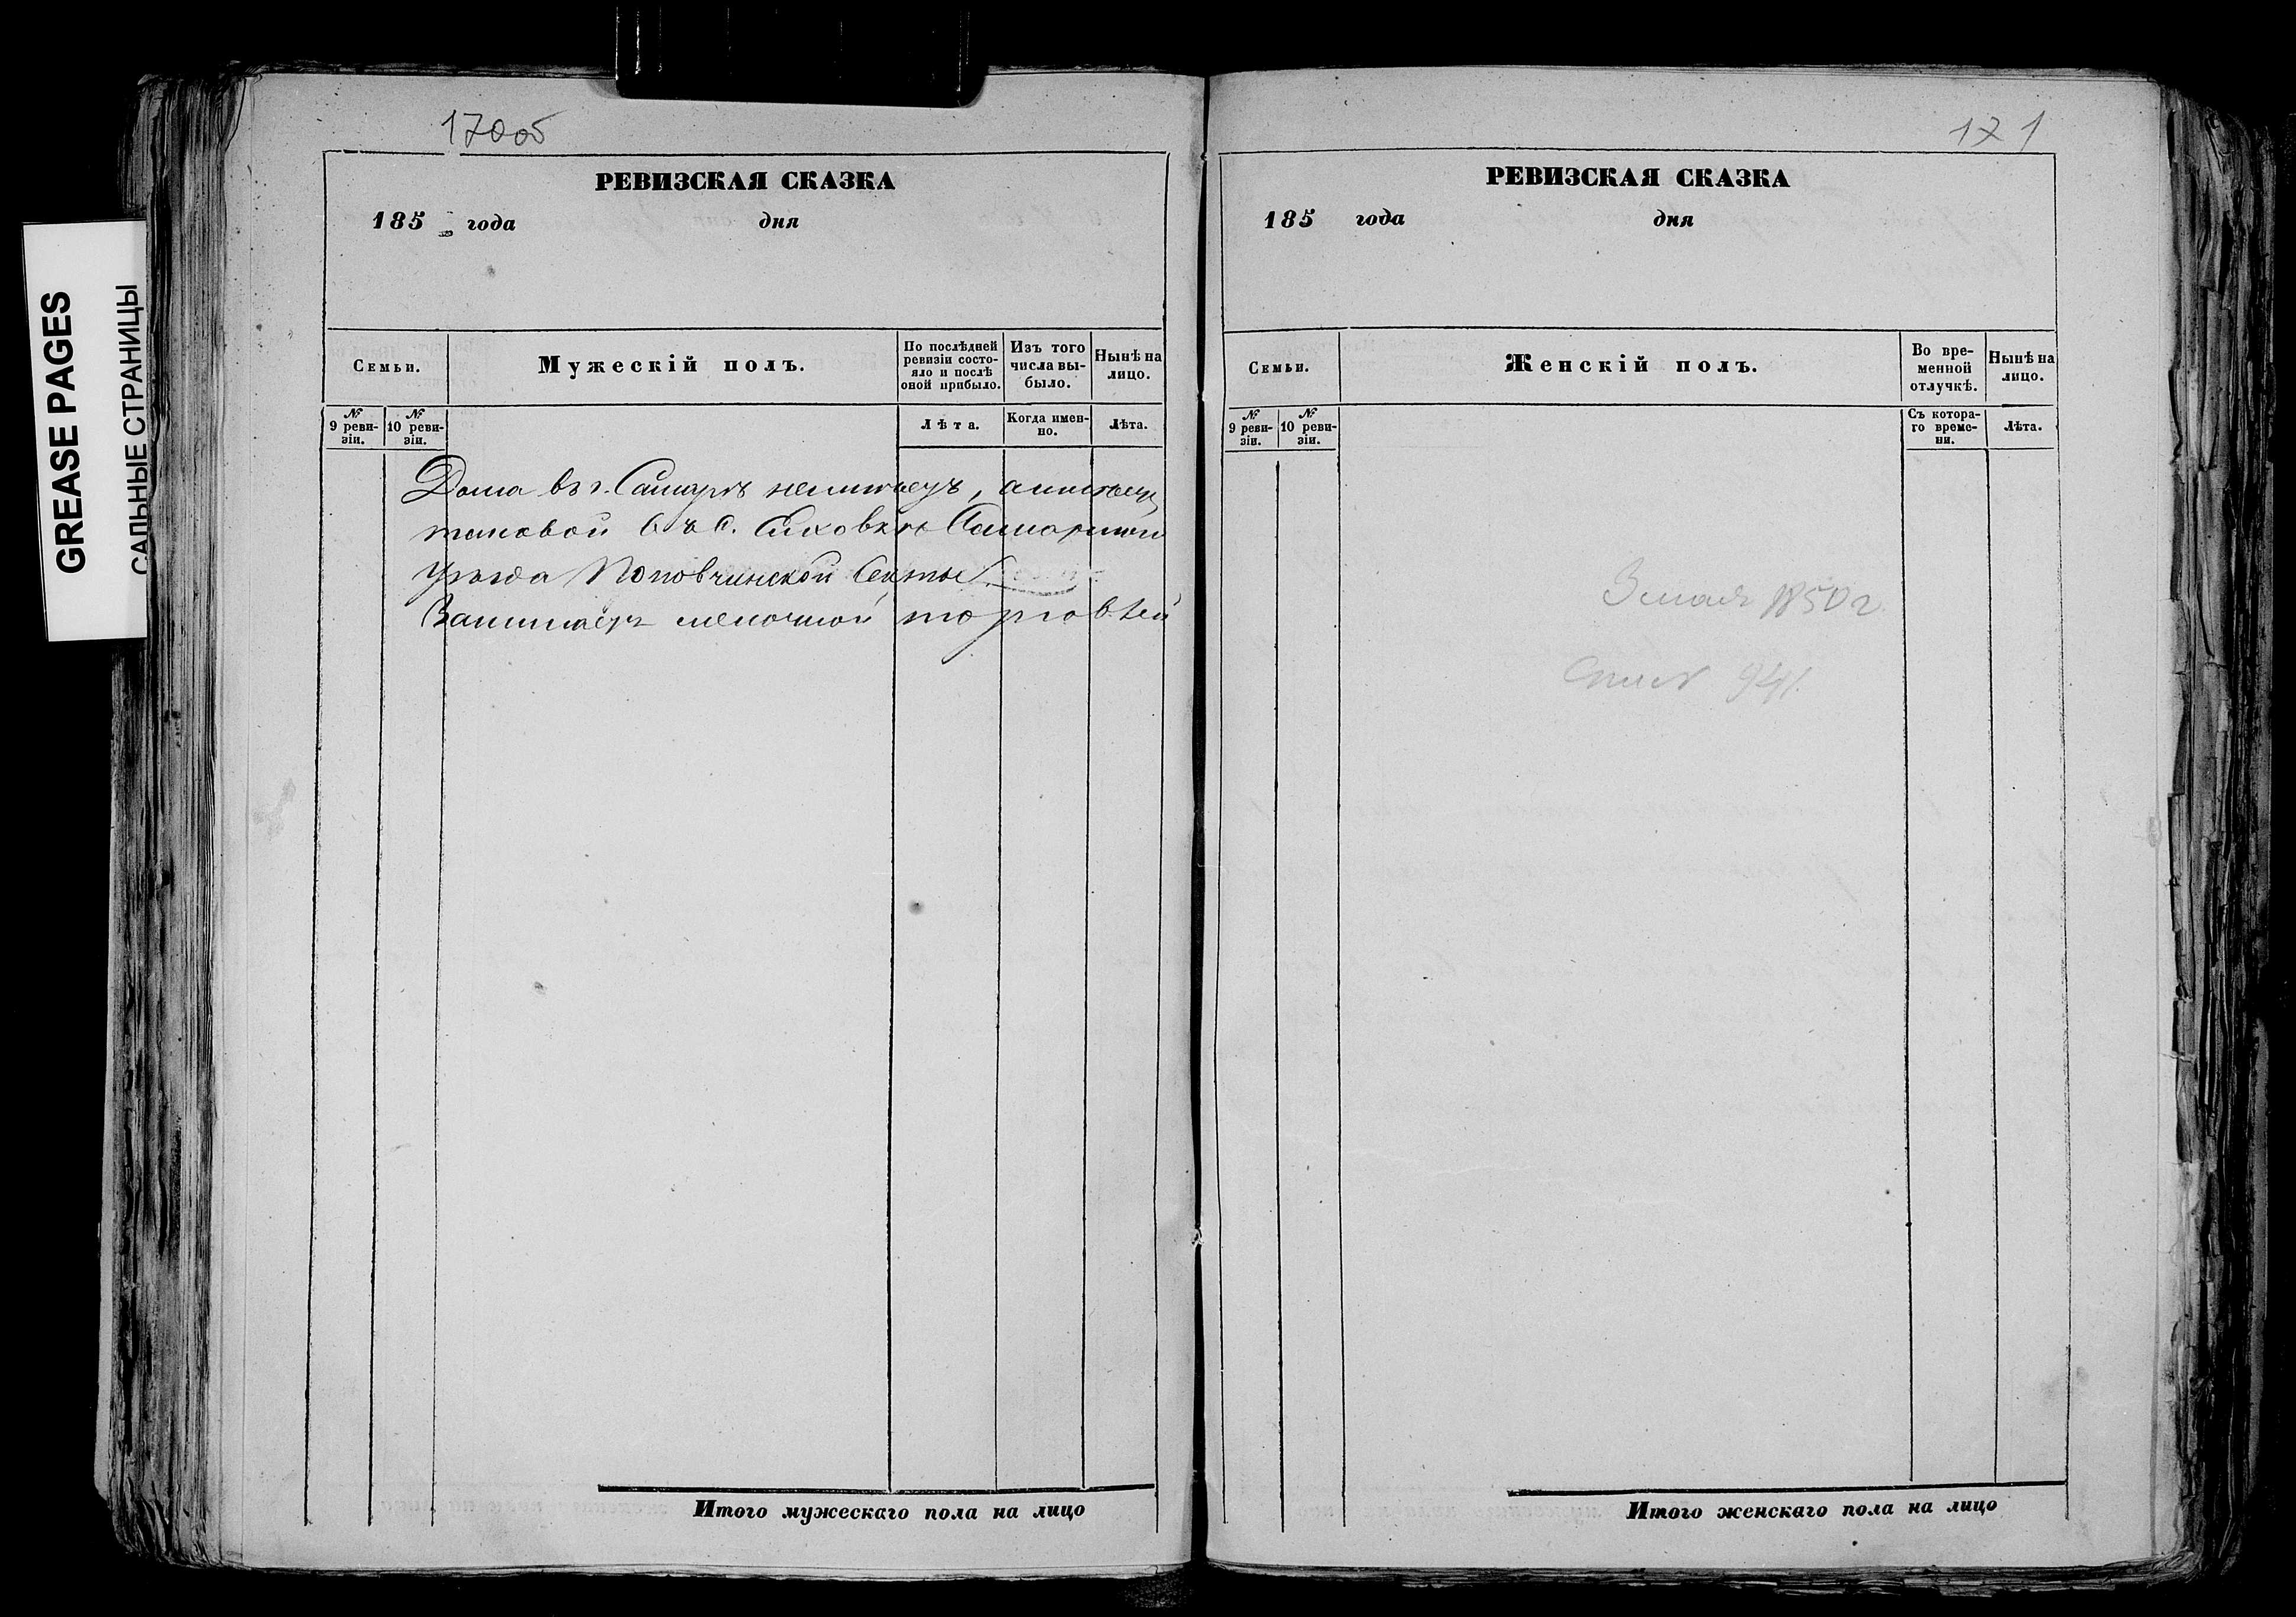 GREASE PAGES
САЛЬНЫЕ СТРАНИЦЫ
170об
РЕВИЗСКАЯ СКАЗКА
185 года дня
Семьи.
Мужескій полъ.
По послѣдней ревизіи состояло и послѣ оной прибыло.
Изъ того числа выбыло.
Нынѣ на лицо.
№ 9 ревизіи.
№ 10 ревизіи.
Лѣта.
Когда именно.
Лѣта.
Дома въ г. Самарѣ неимѣетъ, аимѣетъ
таковой въ с. Самарскаго
Уѣзда Поповчинской Секты
Занимаетъ мелочной торговлей
Итого мужескаго пола на лицо
171
РЕВИЗСКАЯ СКАЗКА
185 года дня
Семьи.
Женскій полъ.
Во временной отлучкѣ.
Нынѣ на лицо.
№ 9 ревизіи.
№ 10 ревизіи.
Съ котораго времени.
Лѣта.
3 мая 1850 г.
941
Итого женскаго пола на лицо